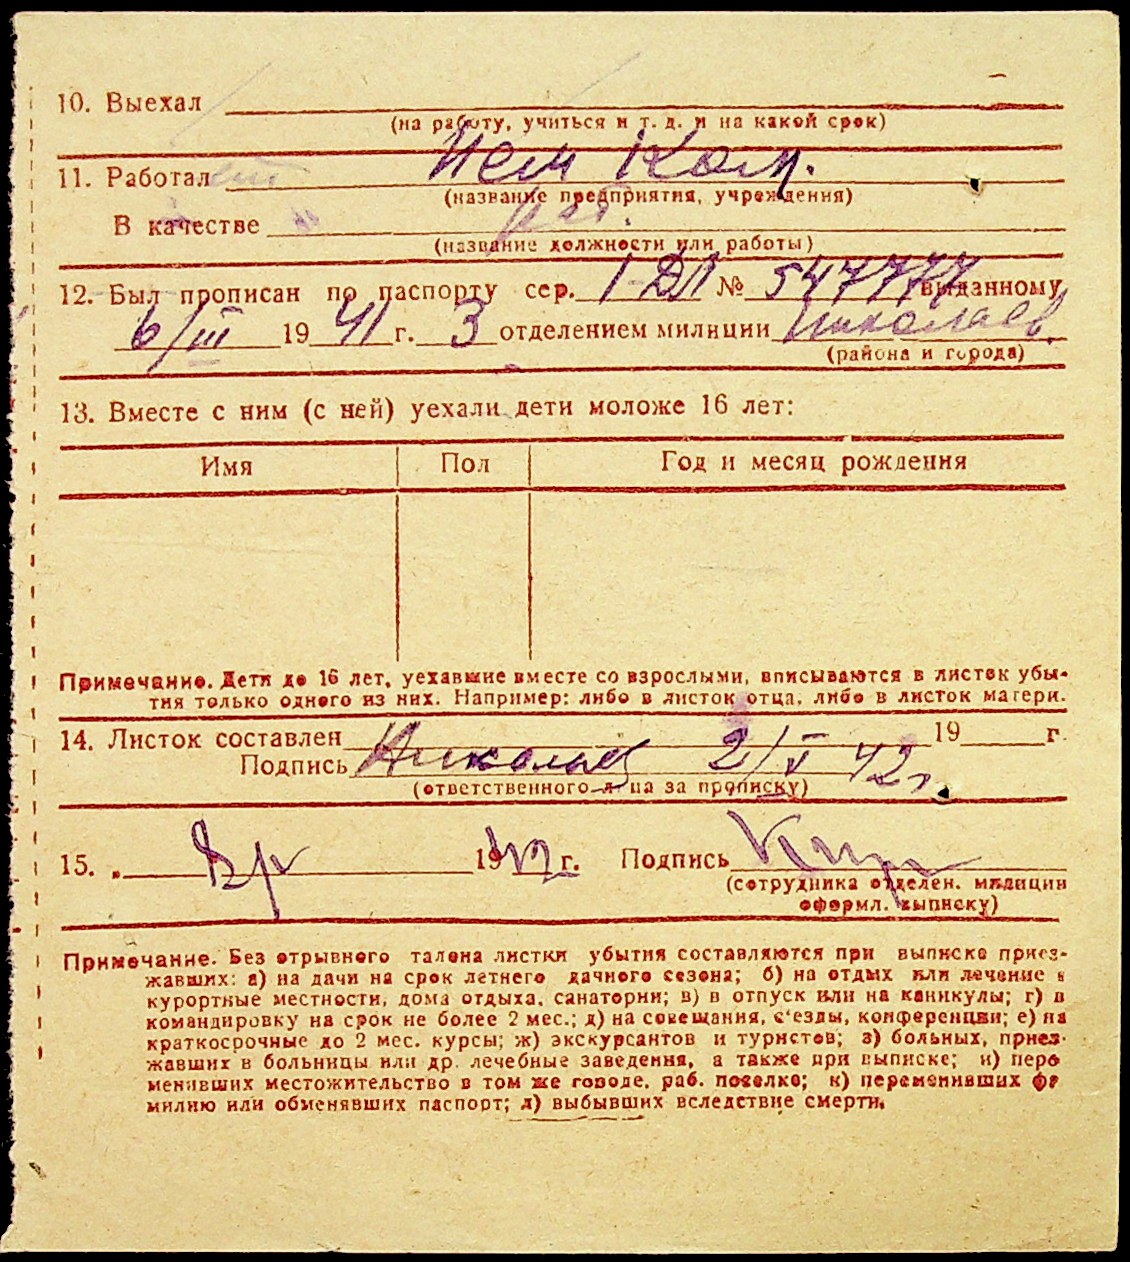 10. Выехал
(на работу, учиться и т. д. и на какой срок)
11. Работал Нем Ком.
(название предприятия, учреждения)
В качестве раб.
(название должности или работы)
12. Был прописан по паспорту сер. I-ДЛ № 547777 выданному
6/III 1941 г. 3 отделением милиции Николаев.
(района и города)
13. Вместе с ним (с ней) уехали дети моложе 16 лет:
Имя Пол Год и месяц рождения
Примечание. Дети до 16 лет, уехавшие вместе со взрослыми, вписываются в листок убы-
тия только одного из них. Например: либо в листок отца, либо в листок матери.
14. Листок составлен 19 г.
Подпись 2/V 42 г.
(ответственного лица за прописку)
15. 1942 г. Подпись
(сотрудника отделен. милиции
оформл. выписку)
Примечание. Без отрывного талона листки убытия составляются при выписке приез-
жавших: а) на дачи на срок летнего дачного сезона; б) на отдых или лечение в
курортные местности, дома отдыха, санатории; в) в отпуск или на каникулы; г) в
командировку на срок не более 2 мес.; д) на совещания, с'езды, конференции; е) на
краткосрочные до 2 мес. курсы; ж) экскурсантов и туристов; з) больных, приез-
жавших в больницы или др. лечебные заведения, а также при выписке; и) пере
менивших местожительство в том же городе, раб. поселке; к) переменивших фа
милию или обменявших паспорт; л) выбывших вследствие смерти.